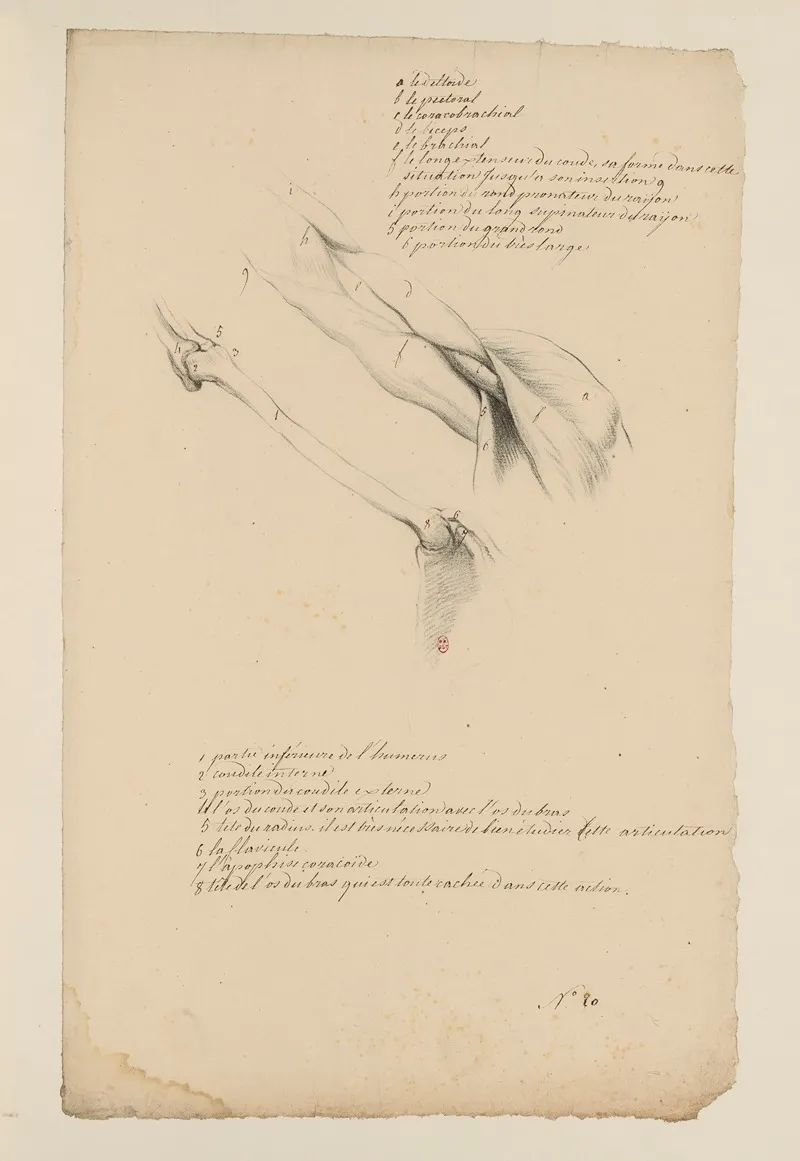 a le deltoïde
b le pectoral
c le coracobrachial
d le biceps
e le brachial
f le long extenseur du coude, sa forme dans cette
situation jusqu'a son insertion g
h portion du rond pronateur du raijon
i portion du long supinateur du raijon
5 portion du grand rond
6 portion du très large
i
h
g
e
d
f
c
a
5
6
b
5
4
2
3
1
8
6
7
1 partie inférieure de l'humerus
2 condile interne
3 portion du condile externe
4 l'os du coude et son articulation avec l'os du bras
5 tete du radius. il est très nécessaire de bien étudier cette articulation
6 la flavicule.
7 l'apophise coracoïde
8 tête de l'os du bras qui est toute cachée dans cette action.
N° 20